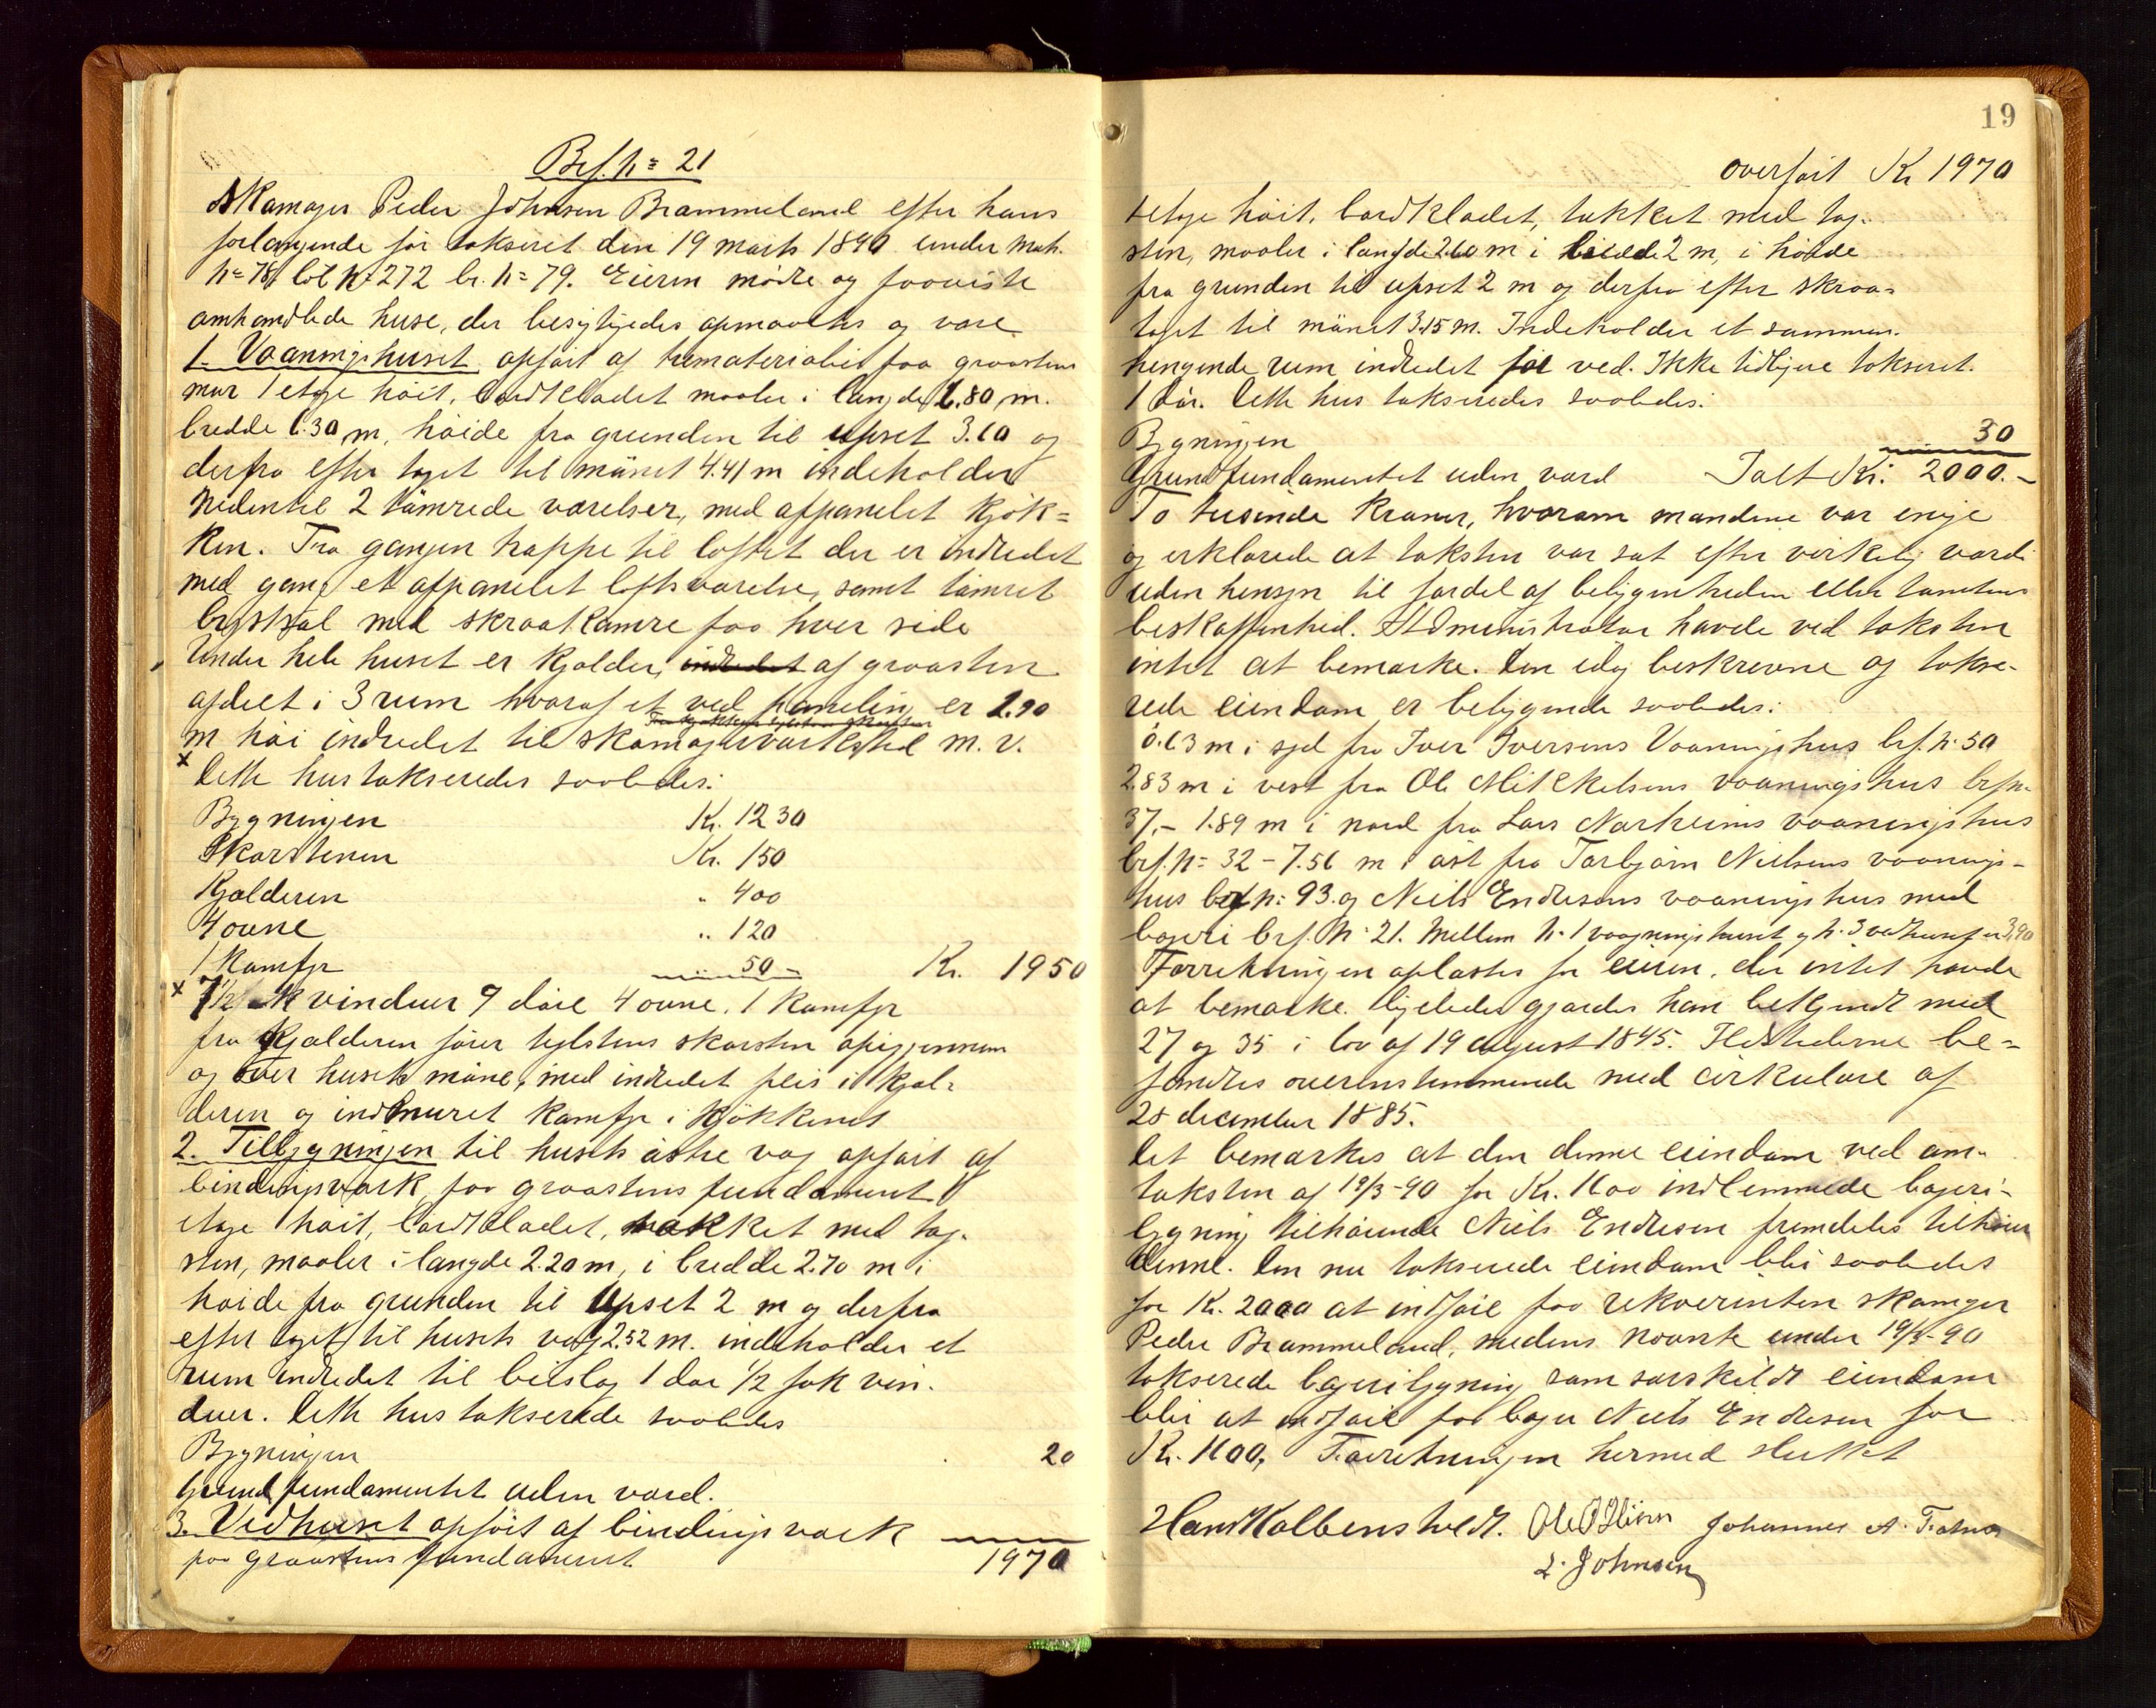 Brf. № 21
Skomager Peder Johnsen Brommeland efter hans
forlangende før takseret den 19 marts 1890 under Matr.
№ 78, løb № 272 br. № 79. Eieren mødte og foreviste
omhandlede huse, der besigtigedes opmaaltes og vare
1. Vaaningshuset opført af træmaterialier paa graastens
mur 1 etage høit, bordklædet maaler i længde 6.80 m.
bredde 6.30 m, høide fra grunden til upset 3.60 og
derfra efter taget til mønet 4.41 m indeholder
nedentil 2 tømrede værelser, med afpanelet kjøk=
ken. Fra gangen trappe til loftet der er indredet
med gang et afpanelet loftsværelse, samt tømret
brystsal med skraakamre paa hver side
Under hele huset er kjelder, indredet af graasten
afdelt i 3 rum hvoraf et ved paneling er 2.90
m høi indredet til skomagerværksted m. v.
x
Dette hus takseredes saaledes:
Bygningen Kr. 1230
Skorstenen Kr. 150
Kjælderen " 400
4 ovne " 120
1 Komfyr 50 - Kr. 1950
x 7 1/2 fak vinduer 9 døre 4 ovne, 1 Komfyr
fra Kjælderen fører teglstens skorsten opigjennem
og over husets møne, med indredet peis i Kjæl=
deren og indmuret Komfyr i Kjøkkenet
2. Tilbygningen til husets østre væg opført af
bindingsværk, paa graastens fundament 1
etage høit, bordklædet, takket med tag-
sten, maaler i længde 2.20 m, i bredde 2.70 m i
høide fra grunden til Upset 2 m og derfra
efter taget til husets væg 2.52 m. indeholder et
rum indredet til beislag 1 dør 1/2 fak vin-
duer. Dette hus takserede saaledes
Bygningen 20
Grundfundamentet uden værd.
3. Vedhuset opført af bindingsværk
paa graastens fundament 1970
19
overført Kr 1970
1 etage høit, bordklædet, takket med tag-
sten, maaler i længde 2.60 m i bredde 2 m, i høide
fra grunden til upset 2 m og derfra efter skraa=
taget til mønet 3.15 m. Indeholder et sammen-
hengende rum indredet for ved. Ikke tidligere takseret.
1 dør. Dette hus takseredes saaledes:
Bygningen 30
Grundfundamentet uden værd Ialt Kr. 2000.-
To tusinde Kroner, hvorom mændene var enige
og erklærede at taksten var sat efter virkelig værdi
uden hensyn til fordel af beliggenheden eller tomtens
beskaffenhed. Administrator havde ved taksten
intet at bemærke. Den idag beskrevne og takse-
rede eiendom er beliggende saaledes:
0.63 m i syd fra Iver Iversens Vaaningshus brf. № 50
2.83 m i vest fra Ole Mikkelsens vaaningshus brf №
37, - 1.89 m i nord fra Lars Norheims vaaningshus
brf. № 32 - 7.56 m i øst fra Torbjørn Nielsens vaanings-
hus brf № 93. og Niels Endresens vaaningshus med
bageri brf. № 21. Mellem № 1 vaaningshuset og № 3 vedhuset er 3,90
Forretningen oplæstes for eieren, der intet havde
at bemærke. ligeledes gjordes han bekjendt med
27 og 35 i lov af 19 august 1845. Ildstederne be=
fandtes overenstemmende med cirkulære af
28 december 1885.
Det bemærkes at den denne eiendom ved om-
taksten af 19/3-90 for Kr. 1600 indlemmede bageri-
bygning tilhørende Niels Endresen fremdeles tilhører
denne. Den nu takserede eiendom blir saaledes
for Kr. 2000 at indføre paa rekvirenten skomager
Peder Brommeland, medens næevnte under 19/3-90
takserede bageribygning som særskildt eiendom
blir at indføre paa bager Niels Endresen for
Kr. 1600, Forretningen hermed sluttet
Hans Kolbenstvedt. Johannes A.
L. Johnsen